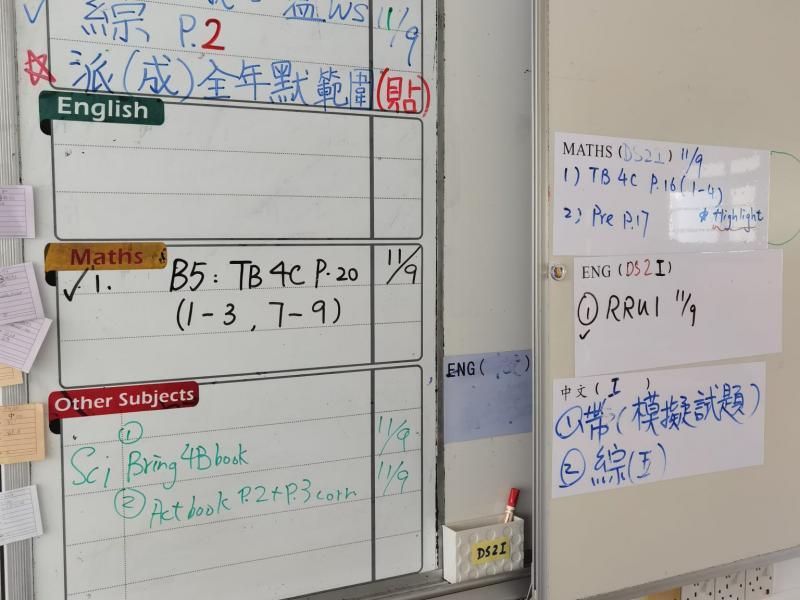 綜 P.2 11/9
派(成)全年默範圍(貼)
English
Maths
1. B5: TB 4C P.20 11/9
(1-3, 7-9)
Other Subjects
① 11/9
Sci Bring 4B book
② Act book P.2+P.3 corn 11/9
ENG( )
DS2I
MATHS (DS2I) 11/9
1) TB 4C P.16 (1-4)
2) Pre P.17 Highlight
ENG (DS2I)
① RRU1 11/9
中文 ( I )
①帶(模擬試題)
② 綜(五)